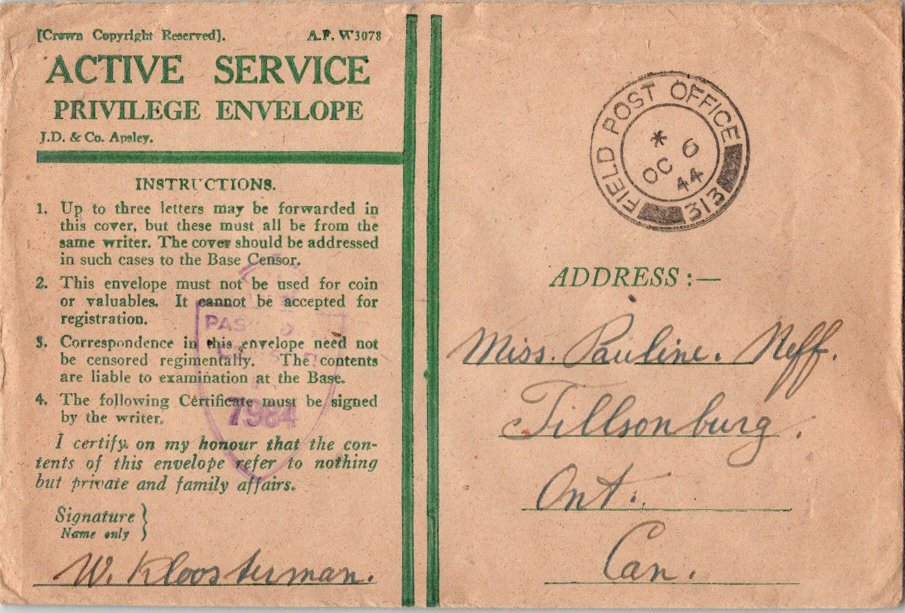 [Crown Copyright Reserved]. A.F. W3078
ACTIVE SERVICE
PRIVILEGE ENVELOPE
J.D. & Co. Apsley.
INSTRUCTIONS.
1. Up to three letters may be forwarded in
this cover, but these must all be from the
same writer. The cover should be addressed
in such cases to the Base Censor.
2. This envelope must not be used for coin
or valuables. It cannot be accepted for
registration.
3. Correspondence in this envelope need not
be censored regimentally. The contents
are liable to examination at the Base.
4. The following Certificate must be signed
by the writer.
I certify on my honour that the con-
tents of this envelope refer to nothing
but private and family affairs.
Signature }
Name only
W. Kloosterman.
7984
FIELD POST OFFICE
*
OC 6
44
313
ADDRESS :—
Miss. Pauline. Neff.
Tillsonburg.
Ont.
Can.